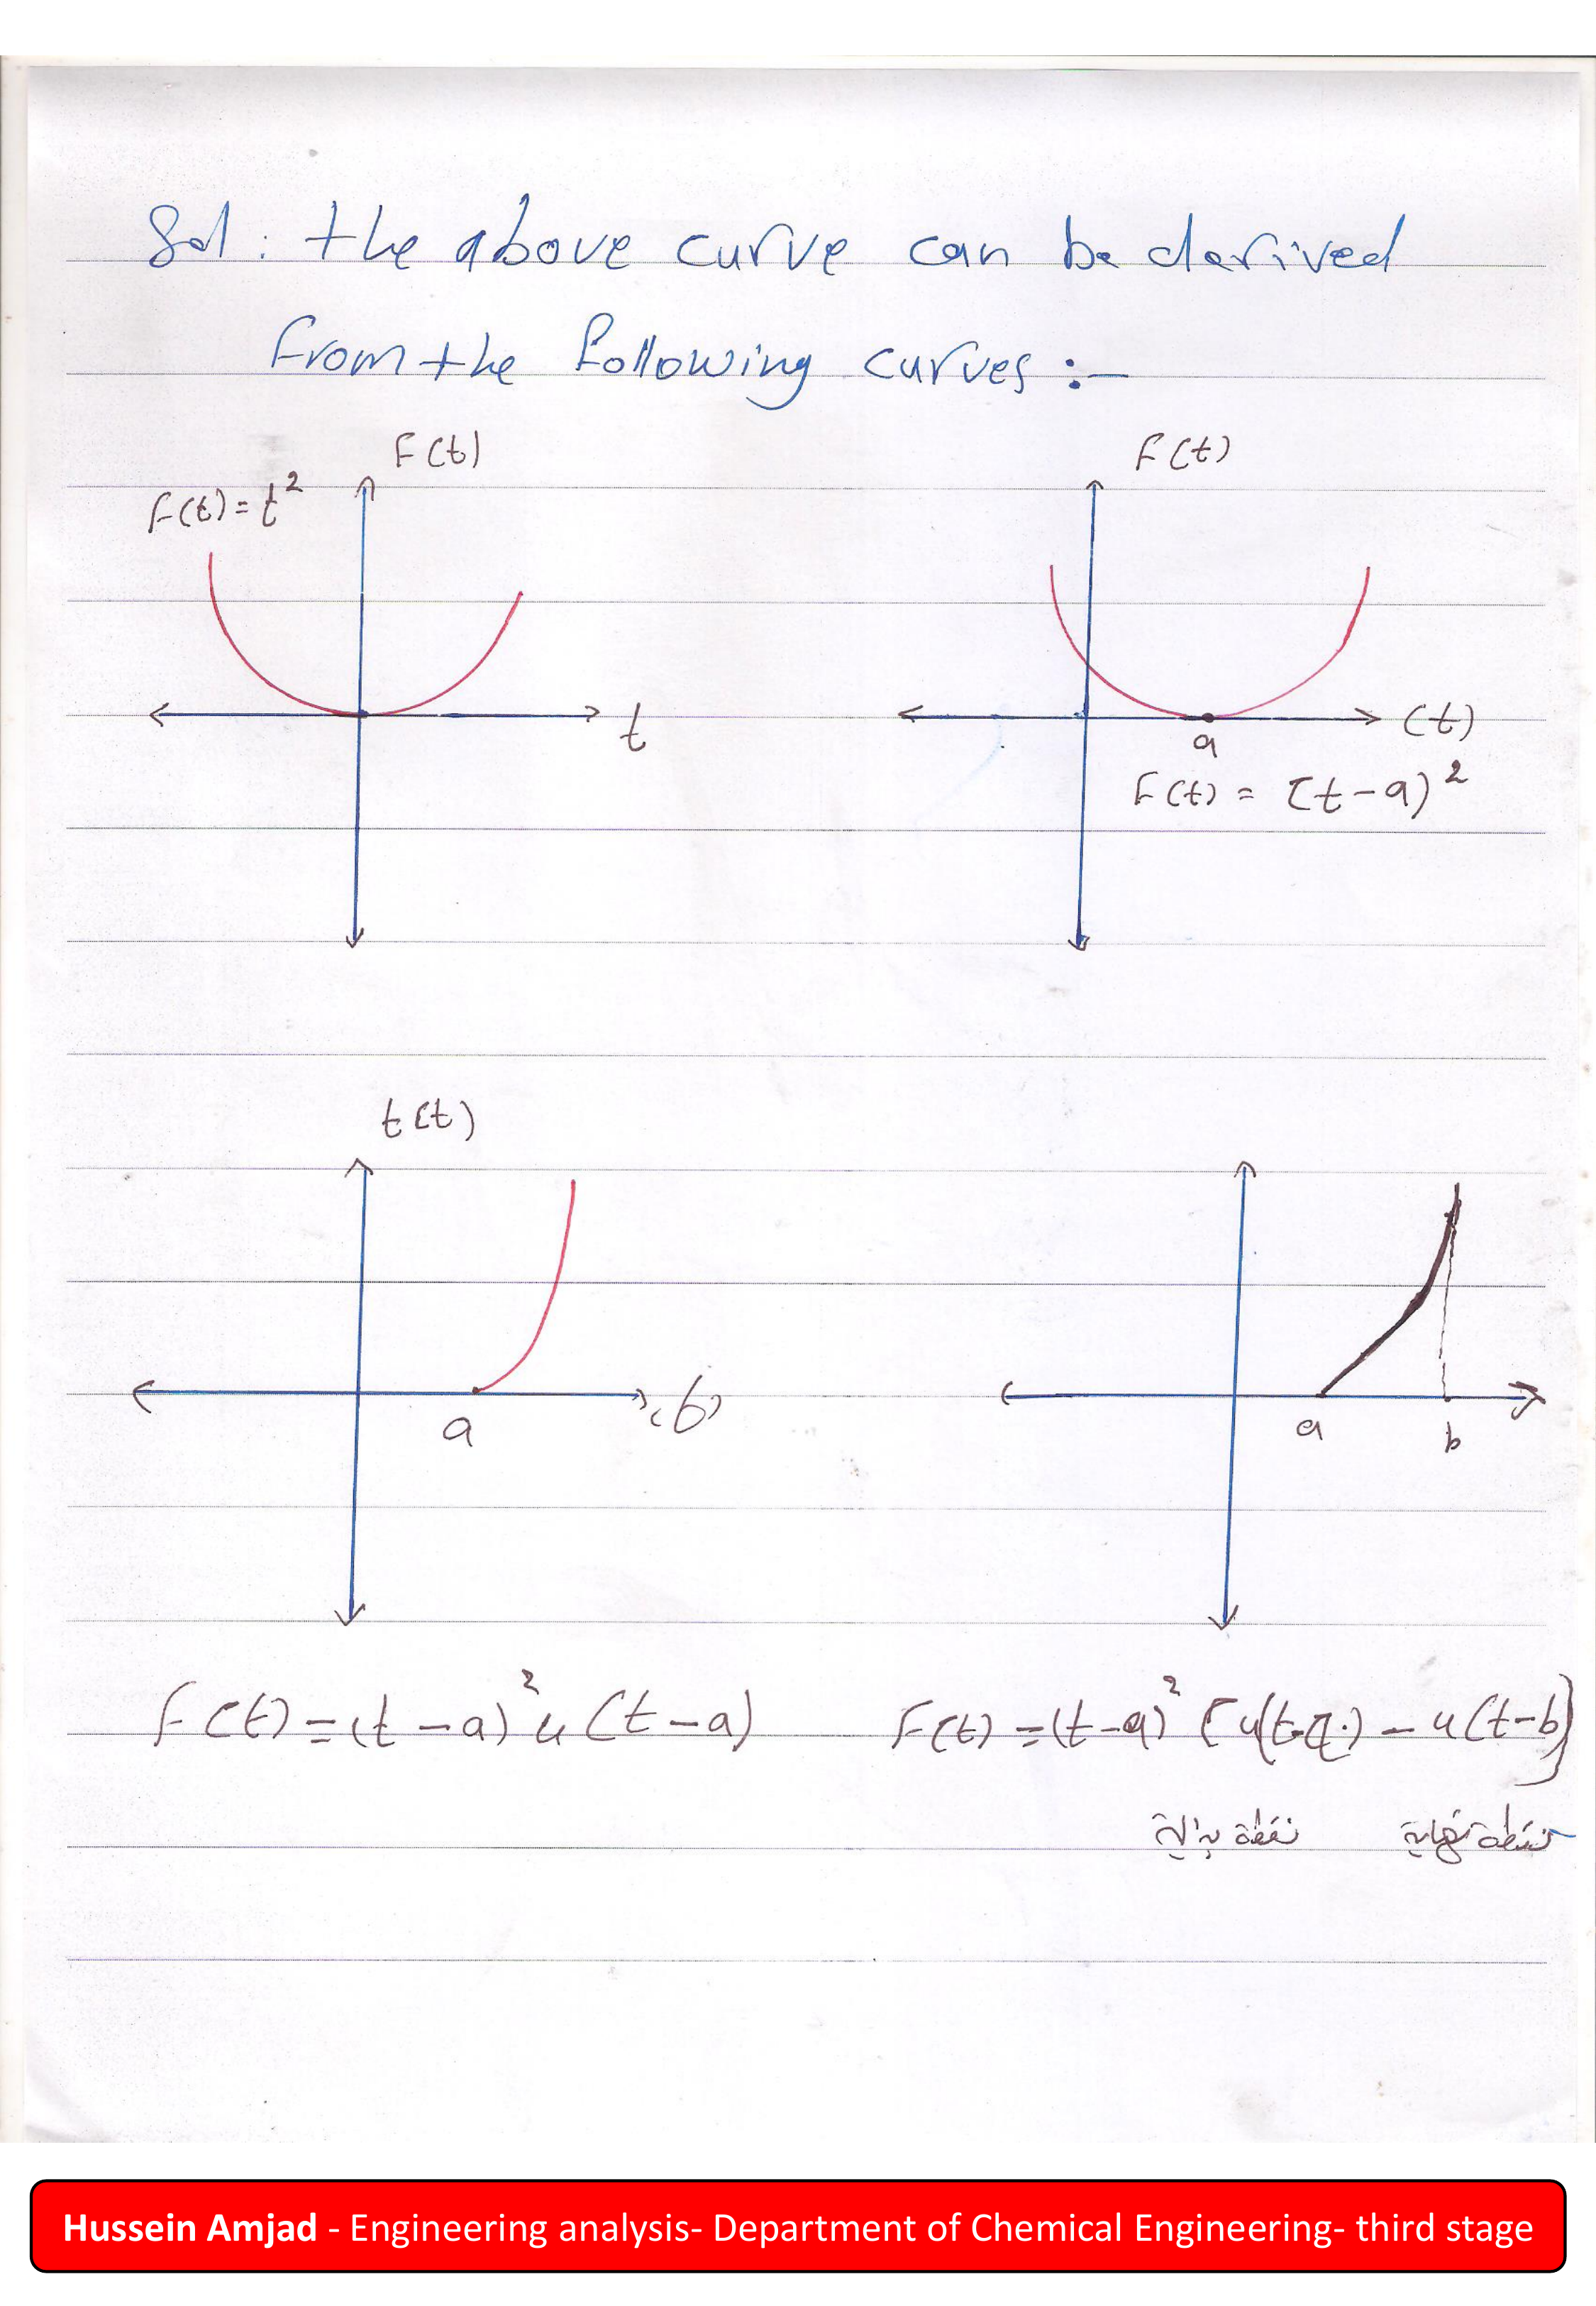 Sol : the above curve can be derived
from the following curves :-
F(t)
F(t) = t²
t
F(t)
(t)
a
F(t) = (t-a)²
t(t)
a
(t)
a
b
F(t) = (t-a)² u(t-a)
F(t) = (t-a)² [u(t-a) - u(t-b)]
نقطة بداية
نقطة نهاية
Hussein Amjad - Engineering analysis- Department of Chemical Engineering- third stage